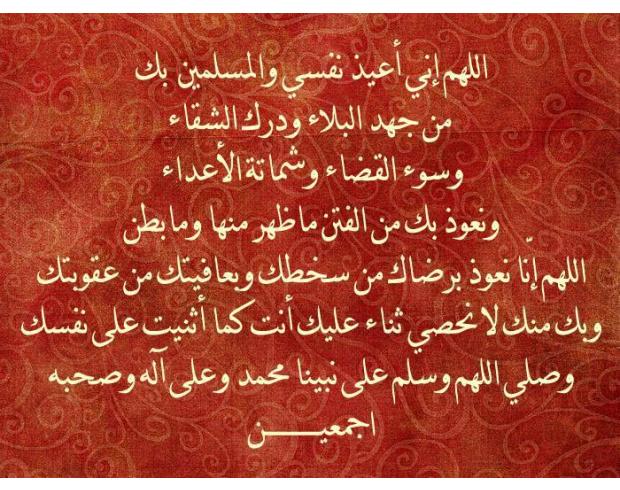 اللهم إني أعيذ نفسي والمسلمين بك
من جهد البلاء ودرك الشقاء
وسوء القضاء وشماتة الأعداء
ونعوذ بك من الفتن ما ظهر منها وما بطن
اللهم إنّا نعوذ برضاك من سخطك وبعافيتك من عقوبتك
وبك منك لا نحصي ثناء عليك أنت كما أثنيت على نفسك
وصلي اللهم وسلم على نبينا محمد وعلى آله وصحبه
اجمعيـــــن